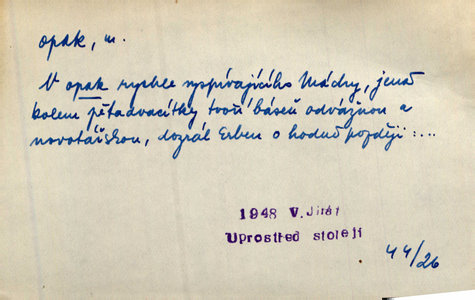 opak, m.
V opak rychle vyspívajícího Máchy, jenž
kolem pětadvacítky tvoří báseň odvážnou a
novotářskou, dozrál Erben o hodně později : ...
1948 V. Jirát
Uprostřed století
44/26